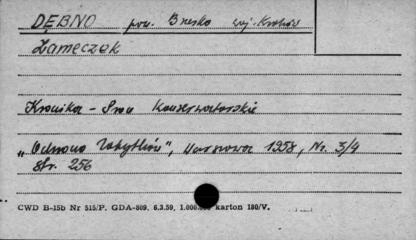 DĘBNO pow. Brzesko woj. Kraków
Zameczek
Kronika - Prace konserwatorskie
„Ochrona Zabytków", Warszawa 1958, Nr. 3/4
str. 256
CWD B-15b Nr 515/P. GDA-809. 6.3.59. 1.000.000 karton 180/V.